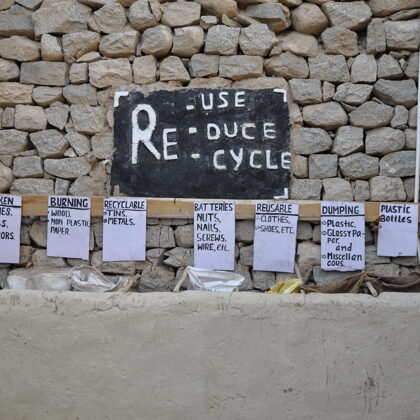 RE -USE
-DUCE
-CYCLE
KEN
BURNING
WOOD,
NON PLASTIC
PAPER.
RECYCLABLE
⇒TINS,
⇒METALS,
BATTERIES
NUTS,
NAILS,
SCREWS,
WIRE, etc.
REUSABLE
⇒CLOTHES,
⇒SHOES, ETC.
DUMPING
⇒PLASTIC,
⇒GLOSSY PA-
PER,
and
⇒MISCELLAN
EOUS.
PLASTIC
BOTTLES